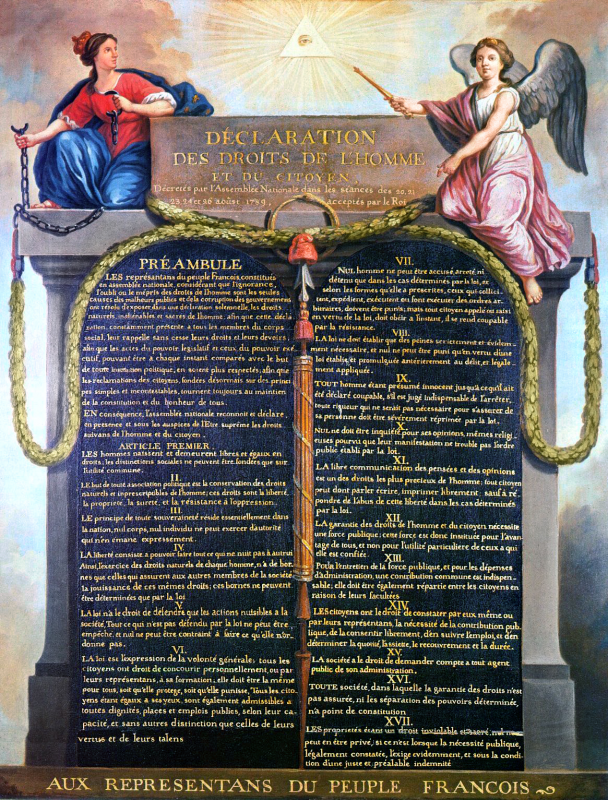 DÉCLARATION
DES DROITS DE L'HOMME
ET DU CITOYEN,
Décrétés par l'Assemblée Nationale dans les séances des 20, 21
23, 24 et 26 août 1789, acceptés par le Roi
PRÉAMBULE
LES représentans du peuple François, constitués
en assemblée nationale, considérant que l'ignorance,
l'oubli ou le mépris des droits de l'homme sont les seules
causes des malheurs publics et de la corruption des gouvernemens
ont résolu d'exposer dans une déclaration solemnelle, les droits
naturels, inaliénables et sacrés de l'homme; afin que cette décla
ration, constamment présente a tous les membres du corps
social, leur rappelle sans cesse leurs droits et leurs devoirs;
afin que les actes du pouvoir législatif et ceux du pouvoir exé
cutif, pouvant être a chaque instant comparés avec le but
de toute institution politique, en soient plus respectés; afin que
les reclamations des citoyens, fondées désormais sur des princi
pes simples et incontestables, tournent toujours au maintien
de la constitution et du bonheur de tous.
EN conséquence, l'assemblée nationale reconnoit et déclare,
en presence et sous les auspices de l'Etre suprême les droits
suivans de l'homme et du citoyen.
ARTICLE PREMIER.
LES hommes naissent et demeurent libres et égaux en
droits; les distinctions sociales ne peuvent être fondées que sur
l'utilité commune.
II.
LE but de toute association politique est la conservation des droits
naturels et inprescriptibles de l'homme; ces droits sont la liberté,
la propriété, la sureté, et la résistance à l'oppression.
III.
LE principe de toute souveraineté réside essentiellement dans
la nation, nul corps, nul individu ne peut exercer d'autorité
qui n'en émane expressement.
IV.
LA liberté consiste a pouvoir faire tout ce qui ne nuit pas à autrui
Ainsi, l'exercice des droits naturels de chaque homme, n'a de bor-
nes que celles qui assurent aux autres membres de la société
la jouissance de ces mêmes droits; ces bornes ne peuvent
être déterminées que par la loi
V.
LA loi n'a le droit de défendre que les actions nuisibles à la
société. Tout ce qui n'est pas défendu par la loi ne peut être
empêché, et nul ne peut être contraint à faire ce qu'elle n'or-
donne pas.
VI.
LA loi est l'expression de la volonté générale; tous les
citoyens ont droit de concourir personnellement, ou par
leurs représentans, à sa formation; elle doit être la même
pour tous, soit qu'elle protege, soit qu'elle punisse. Tous les cito-
yens étant égaux a ses yeux, sont également admissibles à
toutes dignités, places et emplois publics, selon leur ca-
pacité, et sans autres distinction que celles de leurs
vertus et de leurs talens
VII.
NUL homme ne peut être accusé, arreté, ni
détenu que dans les cas déterminés par la loi, et
selon les formes qu'elle a prescrites, ceux qui sollici-
tent, expédient, exécutent ou font exécuter des ordres ar-
bitraires, doivent être punis; mais tout citoyen appelé ou saisi
en vertu de la loi, doit obéir a l'instant, il se rend coupable
par la résistance.
VIII.
LA loi ne doit établir que des peines strictement et évidem-
ment nécessaire, et nul ne peut être puni qu'en vertu d'une
loi établie et promulguée antérierement au délit, et légale-
ment appliquée.
IX.
TOUT homme étant présumé innocent jusqu'a ce qu'il ait
été déclaré coupable, s'il est jugé indispensable de l'arrêter,
toute rigueur qui ne serait pas nécessaire pour s'assurer de
sa personne doit être sévèrement réprimée par la loi.
X.
NUL ne doit être inquiété pour ses opinions, mêmes religi-
euses pourvu que leur manifestation ne trouble pas l'ordre
public établi par la loi.
XI.
LA libre communication des pensées et des opinions
est un des droits les plus precieux de l'homme; tout citoyen
peut dont parler écrire, imprimer librement, sauf à ré-
pondre de l'abus de cette liberté dans les cas déterminés
par la loi.
XII.
LA garantie des droits de l'homme et du citoyen nécessite
une force publique; cette force est donc instituée pour l'avan-
tage de tous, et non pour l'utilité particulière de ceux a qui
elle est confiée.
XIII.
Pour l'entretien de la force publique, et pour les dépenses
d'administration, une contribution commune est indispen-
sable; elle doit être également répartie entre les citoyens en
raison de leurs facultées
XIV.
LES citoyens ont le droit de constater par eux même ou
par leurs représentans, la nécessité de la contribution pub-
lique, de la consentir librement, d'en suivre l'emploi, et d'en
déterminer la quotité, l'assiette, le recouvrement et la durée.
XV.
LA société a le droit de demander compte a tout agent
public de son administration.
XVI.
TOUTE société, dans laquelle la garantie des droits n'est
pas assurée, ni les séparation des pouvoirs déterminée,
n'a point de constitution
XVII.
LES propriétés étant un droit inviolable et sacré, nul ne
peut en être privé, si ce n'est lorsque la nécessité publique,
légalement constatée, l'exige evidemment, et sous la condi
tion d'une juste et préalable indemnité
AUX REPRESENTANS DU PEUPLE FRANCOIS